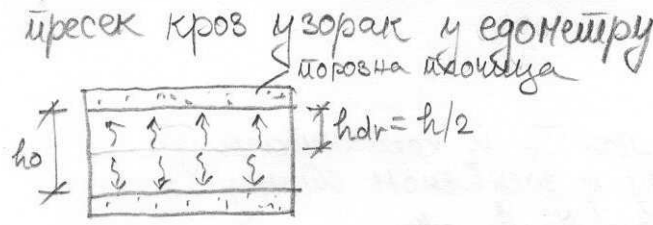 пресек кроз узорак у едометру
порозна плочица
h₀
hdr = h/2